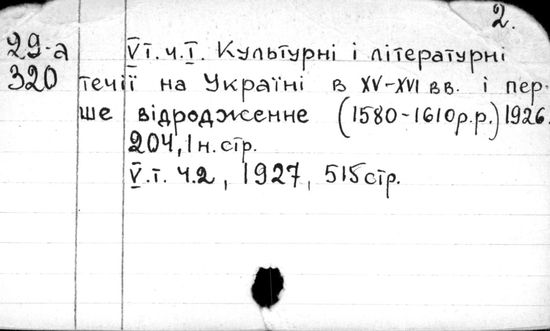 2.
29-а V т. ч. I. Культурні і літературні
320 течії на Україні в XV-XVI вв. і пер-
ше відродженне (1580-1610р.р.) 1926.
204, 1н. стр.
V. т. ч.2, 1927, 515 стр.